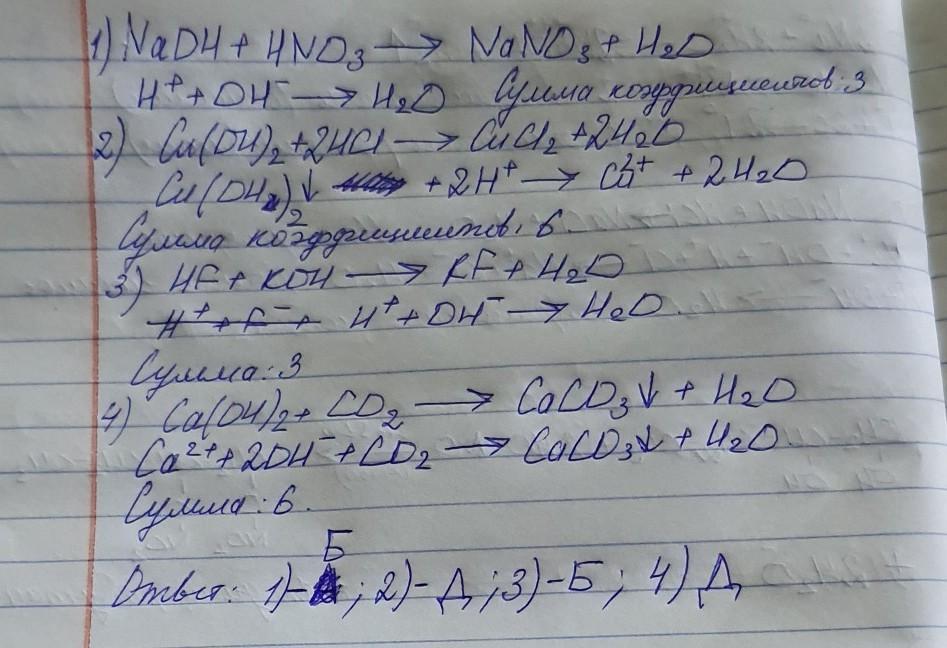 1) NaOH + HNO₃ → NaNO₃ + H₂O
H⁺ + OH⁻ → H₂O Сумма коэффициентов: 3
2) Cu(OH)₂ + 2HCl → CuCl₂ + 2H₂O
Cu(OH)₂↓ + 2H⁺ → Cu²⁺ + 2H₂O
Сумма коэффициентов: 6.
3) HF + KOH → KF + H₂O
H⁺ + F⁻ + H⁺ + OH⁻ → H₂O.
Сумма: 3
4) Ca(OH)₂ + CO₂ → CaCO₃↓ + H₂O
Ca²⁺ + 2OH⁻ + CO₂ → CaCO₃↓ + H₂O.
Сумма: 6.
Б
Ответ: 1)- ; 2)-Д; 3)-Б; 4) Д